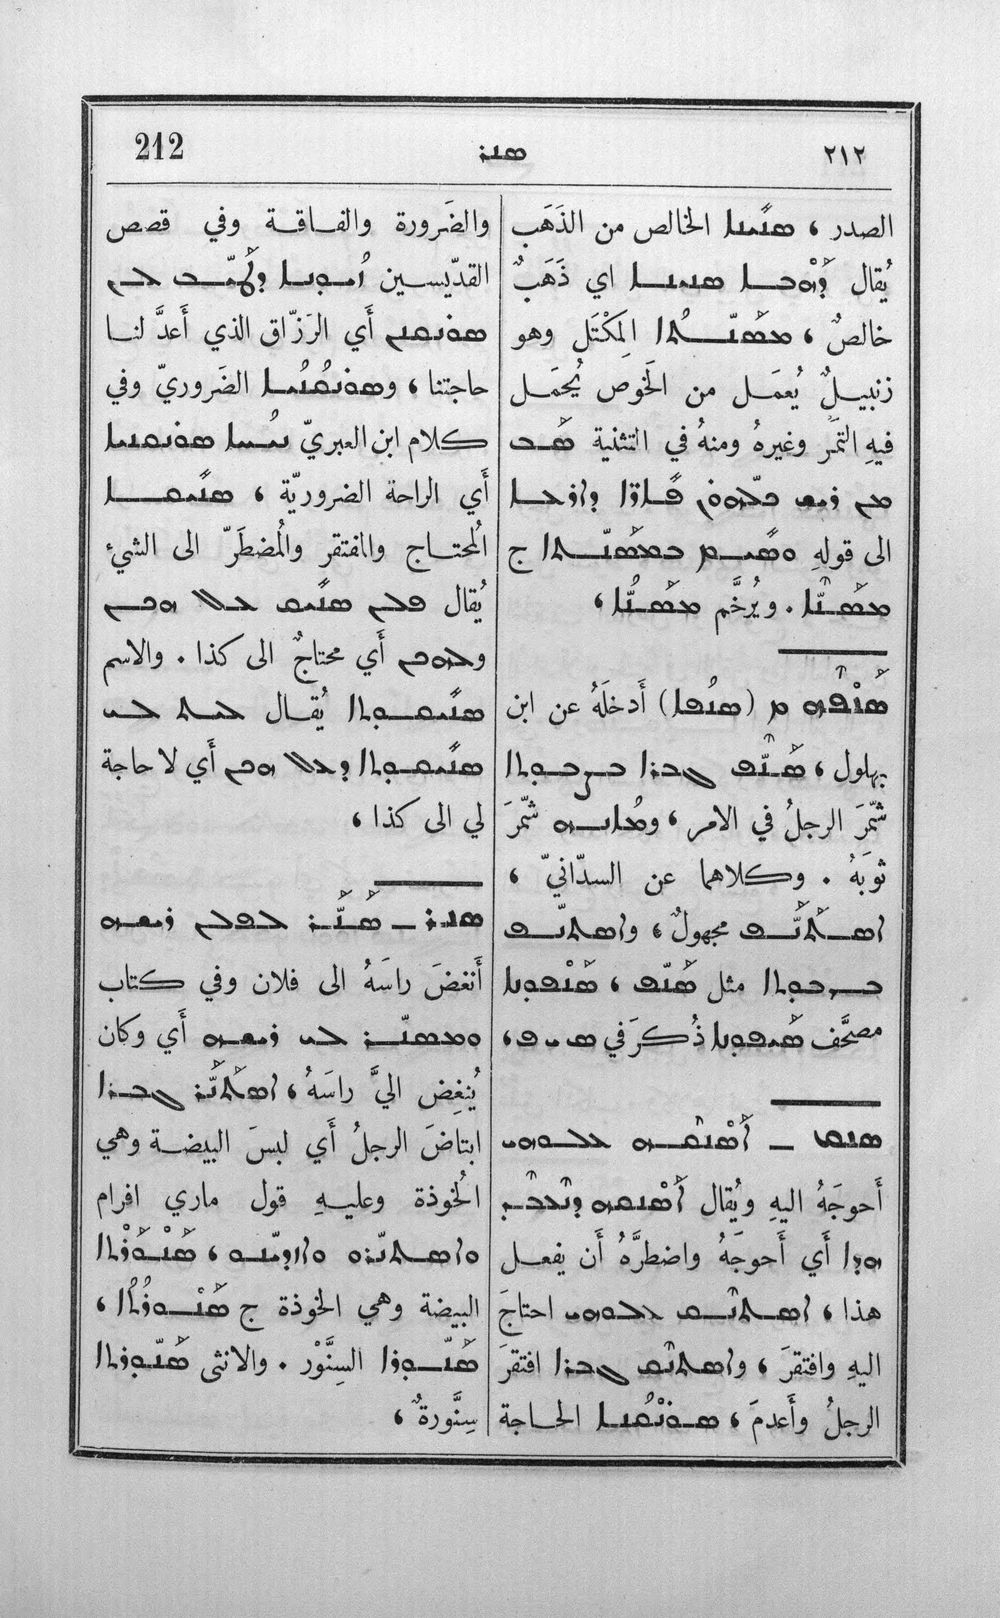 212 ܣܢܪ ٢١٢
الصدر ، ܣܢܝܢܐ الخالص من الذَهَب
يُقال ܕܗܒܐ ܣܢܝܢܐ اي ذَهَبٌ
خالصٌ ، ܡܣܢܬܐ المِكْتَل وهو
زنبيلٌ يُعمَل من الخَوص يُحمَل
فيهِ التَمْر وغيرهُ ومنهُ في التثنية ܣܒ
ܡܢ ܪܝܫ ܟܠܗܘܢ ܦܐܪܐ ܕܐܪܥܐ
الى قولهِ ܘܣܝܡ ܒܡܣܢܬܐ ج
ܡܣܢܐ . ويُرخَّم ܡܣܢܐ ،
ܣܢܦܗ ܡ (ܣܢܦܐ) أَدخلَهُ عن ابن
بهلول ، ܣܢܦ ܓܒܪܐ ܒܨܒܘܬܐ
شَمَّرَ الرجلُ في الامر ، ܘܡܐܢܗ شمَّرَ
ثوبَهُ . وكلاهما عن السدّانيّ ،
ܐܣܬܢܦ مجهولٌ ، ܘܐܣܬܢܦ
ܒܨܒܘܬܐ مثل ܣܢܦ ، ܣܢܦܘܢܐ
مصحَّف ܣܝܦܘܢܐ ذُكرَ في ܣ ܝ ܦ ،
ܣܢܩ ــ ܐܣܢܩܗ ܥܠܘܗܝ
أَحوجَهُ اليهِ ويُقال ܐܣܢܩܗ ܕܢܥܒܕ
ܗܕܐ أَي أَحوجَهُ واضطرَّهُ أَن يفعل
هذا ، ܐܣܬܢܩ ܥܠܘܗܝ احتاجَ
اليهِ وافتقرَ ، ܘܐܣܬܢܩ ܓܒܪܐ افتقرَ
الرجلُ وأَعدمَ ، ܣܘܢܩܢܐ الحاجة
والضَرورة والفاقة وفي قصص
القدّيسين ܐܝܕܢܐ ܕܛܝܒ ܠܢ
ܣܘܢܩܢܢ أَي الرَزّاق الذي أَعدَّ لنا
حاجتنا ، ܘܣܘܢܩܢܝܐ الضَروريّ وفي
كلام ابن العبريّ ܢܝܚܐ ܣܘܢܩܢܝܐ
أَي الراحة الضروريّة ، ܣܢܝܩܐ
المُحتاج والمفتقر والمُضطَرّ الى الشيءِ
يُقال ܦܠܢ ܣܢܝܩ ܥܠ ܗܘܡ
ܘܠܗܘܡ أَي محتاجٌ الى كذا . والاسم
ܣܢܝܩܘܬܐ يُقال ܠܝܬ ܠܝ
ܣܢܝܩܘܬܐ ܕܥܠ ܗܘܡ أَي لا حاجة
لي الى كذا ،
ܣܢܪ ــ ܣܢܪ ܠܦܠܢ ܪܝܫܗ
أَنغضَ راسَهُ الى فلان وفي كتاب
ܘܡܣܢܪ ܠܝ ܪܝܫܗ أَي وكان
يُنغِض اليَّ راسَهُ ، ܐܣܬܢܪ ܓܒܪܐ
ابتاضَ الرجلُ أَي لبسَ البيضة وهي
الخُوذة وعليهِ قول ماري افرام
ܘܐܣܬܢܪܘ ܘܐܙܕܝܢܘ ، ܣܢܘܪܬܐ
البيضة وهي الخوذة ج ܣܢܘܪܬܐ ،
ܣܢܘܪܐ السِنَّوْر . والانثى ܣܢܘܪܬܐ
سِنَّورةٌ ،